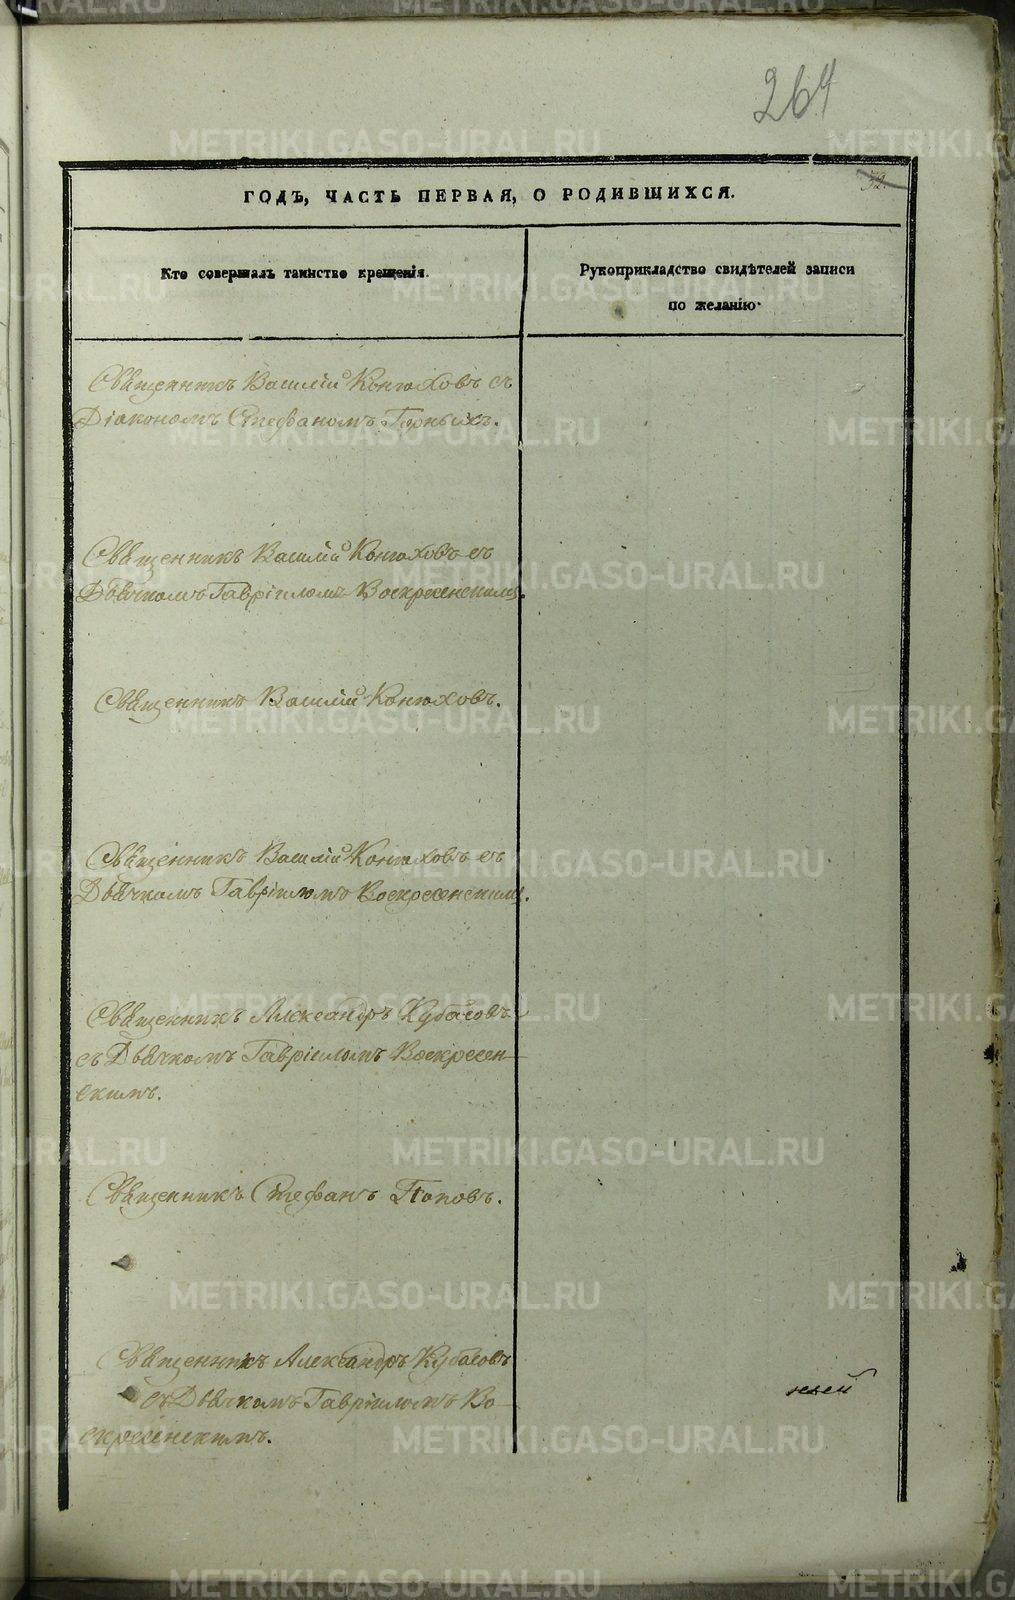 264
32.
ГОДЪ, ЧАСТЬ ПЕРВАЯ, О РОДИВШИХСЯ.
Кто совершалъ таинство крещенія.
Рукоприкладство свидѣтелей записи
по желанію.
Священникъ Василій Конюховъ съ
Діакономъ Стефаномъ Горныхъ.
Священникъ Василій Конюховъ съ
Дьячкомъ Гавріиломъ Воскресенскимъ.
Священникъ Василій Конюховъ.
Священникъ Василій Конюховъ съ
Дьячкомъ Гавріиломъ Воскресенскимъ.
Священникъ Александръ Кубасовъ
съ Дьячкомъ Гавріиломъ Воскресен-
скимъ.
Священникъ Стефанъ Поповъ.
Священникъ Александръ Кубасовъ
съ Дьячкомъ Гавріиломъ Во-
скресенскимъ.
METRIKI.GASO-URAL.RU